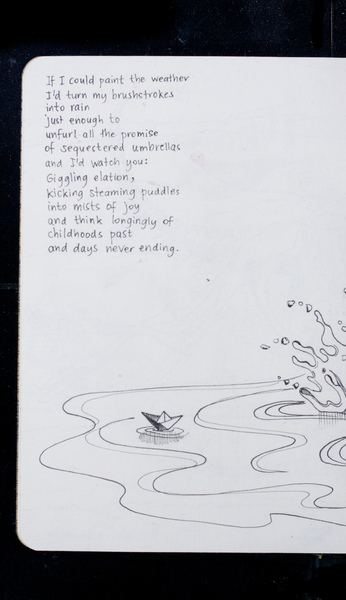 If I could paint the weather
I'd turn my brushstrokes
into rain
just enough to
unfurl all the promise
of sequestered umbrellas
and I'd watch you:
Giggling elation,
kicking steaming puddles
into mists of joy
and think longingly of
childhoods past
and days never ending.